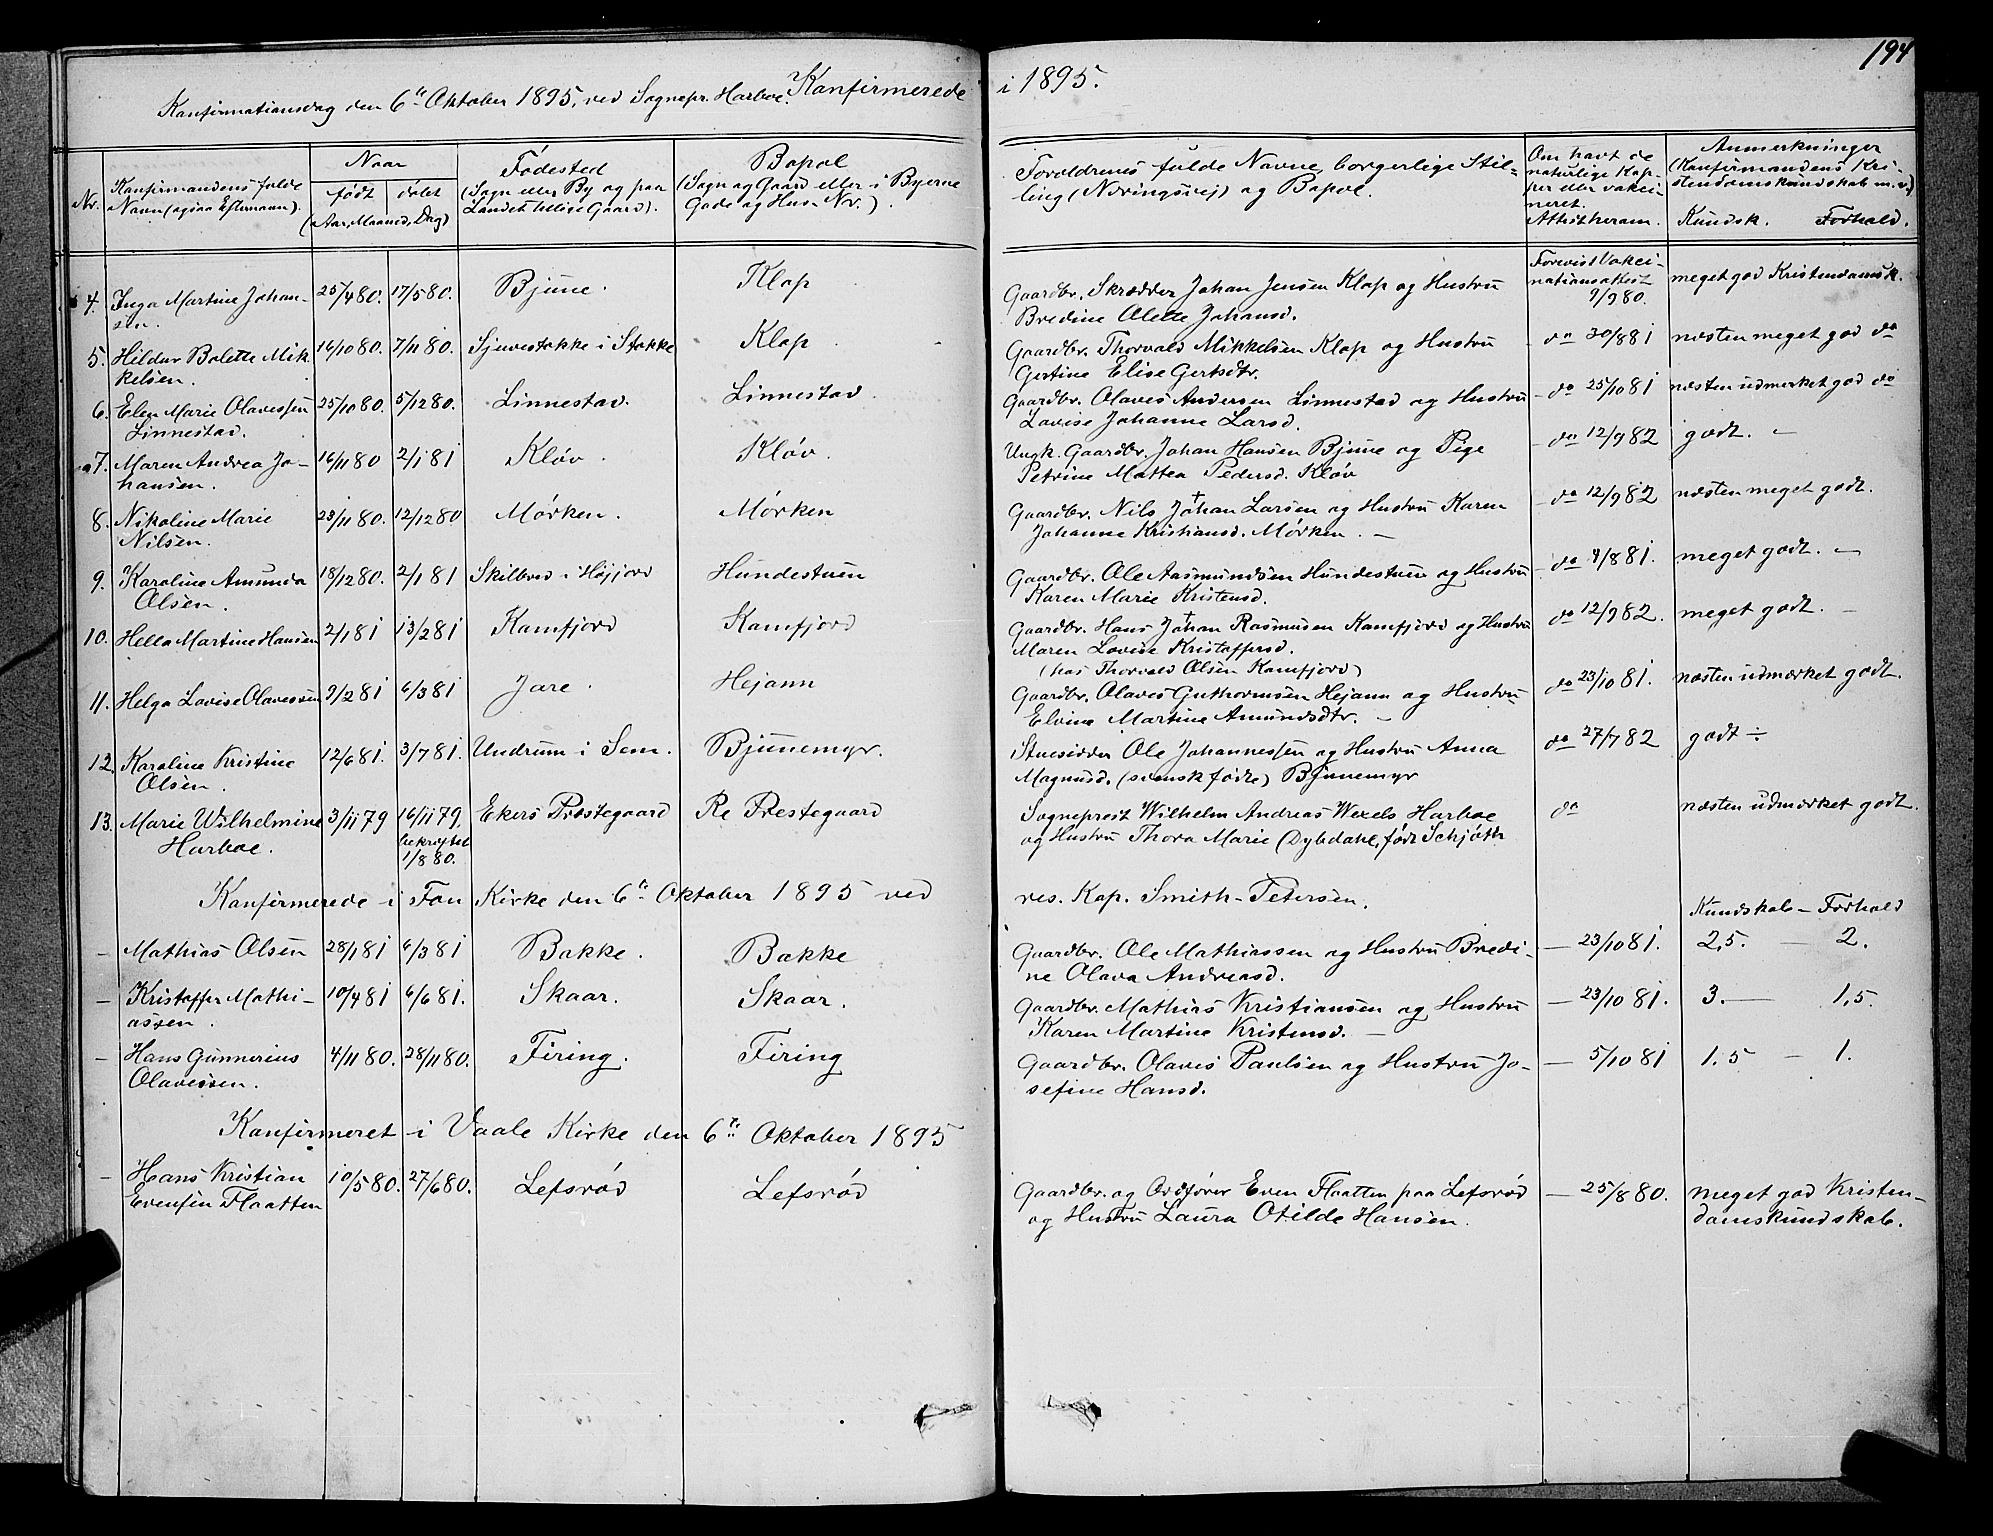 194
Konfirmerede i 1895.
Konfirmationsdag den 6te Oktober 1895, ved Sognepr. Harboe.
Nr.
Konfirmandens fulde Navn (ogsaa Efternavn).
Naar
født
døbt
(Aar, Maaned, Dag)
Fødested
(Sogn eller By og paa Landet tillige Gaard).
Bopæl
(Sogn og Gaard eller i Byerne Gade og Hus-Nr.).
Forældrenes fulde Navne, borgerlige Stilling (Næringsvej) og Bopæl.
Om havt de naturlige Kopper eller vakcineret. Attestheram.
Anmerkninger
(Konfirmandens Kristendomskundskab m.v.)
Kundsk. Forhold.
4. Inga Martine Johansen. 25/4 80. 17/5 80. Bjune. Klop Gaardbr. Skrædder Johan Jensen Klop og Hustru Bredine Olette Johansd. Forevist Vakcinationsattest 9/9 80. meget god Kristendomsk.
5. Hildur Bolette Mikkelsen. 16/10 80. 7/11 80. Sjuestokke i Stokke Klop. Gaardbr. Thorvald Mikkelsen Klop og Hustru Gertine Elise Gertsdtr. — do 30/8 81 næsten meget god do
6. Elen Marie Olavessen Linnestad. 25/10 80. 5/12 80. Linnestad. Linnestad. Gaardbr. Olaves Andersen Linnestad og Hustru Lovise Johanne Larsd. — do 25/10 81 næsten udmerket god do
7. Maren Andrea Johansen. 16/11 80 2/1 81 Kløv. Kløv. Ungk. Gaardbr. Johan Hansen Bjune og Pige Petrine Mathea Pedersd. Kløv — do 12/9 82 godt. —
8. Nikoline Marie Nilsen. 23/11 80. 12/12 80 Mørken. Mørken Gaardbr. Nils Johan Larsen og Hustru Karen Johanne Kristiansd. Mørken. — — do 12/9 82 næsten meget godt.
9. Karoline Amunda Olsen. 18/12 80. 2/1 81 Skilbred i Højjord Hundestuen Gaardbr. Ole Aasmundsen Hundestuen og Hustru Karen Marie Kristensd. — do 9/8 81. meget godt. —
10. Hella Martine Hansen 2/1 81 13/2 81 Kamfjord Kamfjord Gaardbr. Hans Johan Rasmusen Kamfjord og Hustru Maren Lovise Kristoffersd. (hos Thorvald Olsen Kamfjord) do 12/9 82. meget godt. —
11. Helga Lovise Olavessen 9/2 81 6/3 81 Jare. Hejann Gaardbr. Olaves Guthormsen Hejann og Hustru Elvine Martine Amundsdtr. — do 23/10 81. næsten udmærket godt.
12. Karoline Kristine Olsen. 12/6 81. 3/7 81. Undrum i Sem. Bjunemyr. Stuesidder Ole Johannessen og Hustru Anna Magnusd. (svensk fødte) Bjunemyr do 27/7 82 godt ÷
13. Marie Wilhelmine Harboe. 3/11 79 16/11 79. bekræftet 1/8 80. Ekers Præstegaard Re Prestegaard Sogneprest Wilhelm Andreas Wexels Harboe og Hustru Thora Marie (Dybdahl, født Schjøth do næsten udmærket godt.
Konfirmerede i Fon Kirke den 6te Oktober 1895 ved res. Kap. Smith-Petersen.
Kundskab — Forhold
— Mathias Olsen 28/1 81 6/3 81 Bakke. Bakke Gaardbr. Ole Mathiassen og Hustru Bredine Olava Andreasd. — 23/10 81. 2,5. — 2.
— Kristoffer Mathiassen. 10/4 81 6/6 81. Skaar. Skaar. Gaardbr. Mathias Kristiansen og Hustru Karen Martine Kristensd. — — 23/10 81. 3. — 1,5.
— Hans Gunnerius Olavessen. 4/11 80. 28/11 80. Firing. Firing Gaardbr. Olaves Paulsen og Hustru Josefine Hansd. — 5/10 81 1.5 — 1.
Konfirmeret i Vaale Kirke den 6te Oktober 1895
— Hans Kristian Evensen Flaatten 10/5 80. 27/6 80. Lefsrød Lefsrød Gaardbr. og Ordfører Even Flaatten paa Lefsrød og Hustru Laura Otilde Hansen. — 25/8 80. meget god Kristendomskundskab.